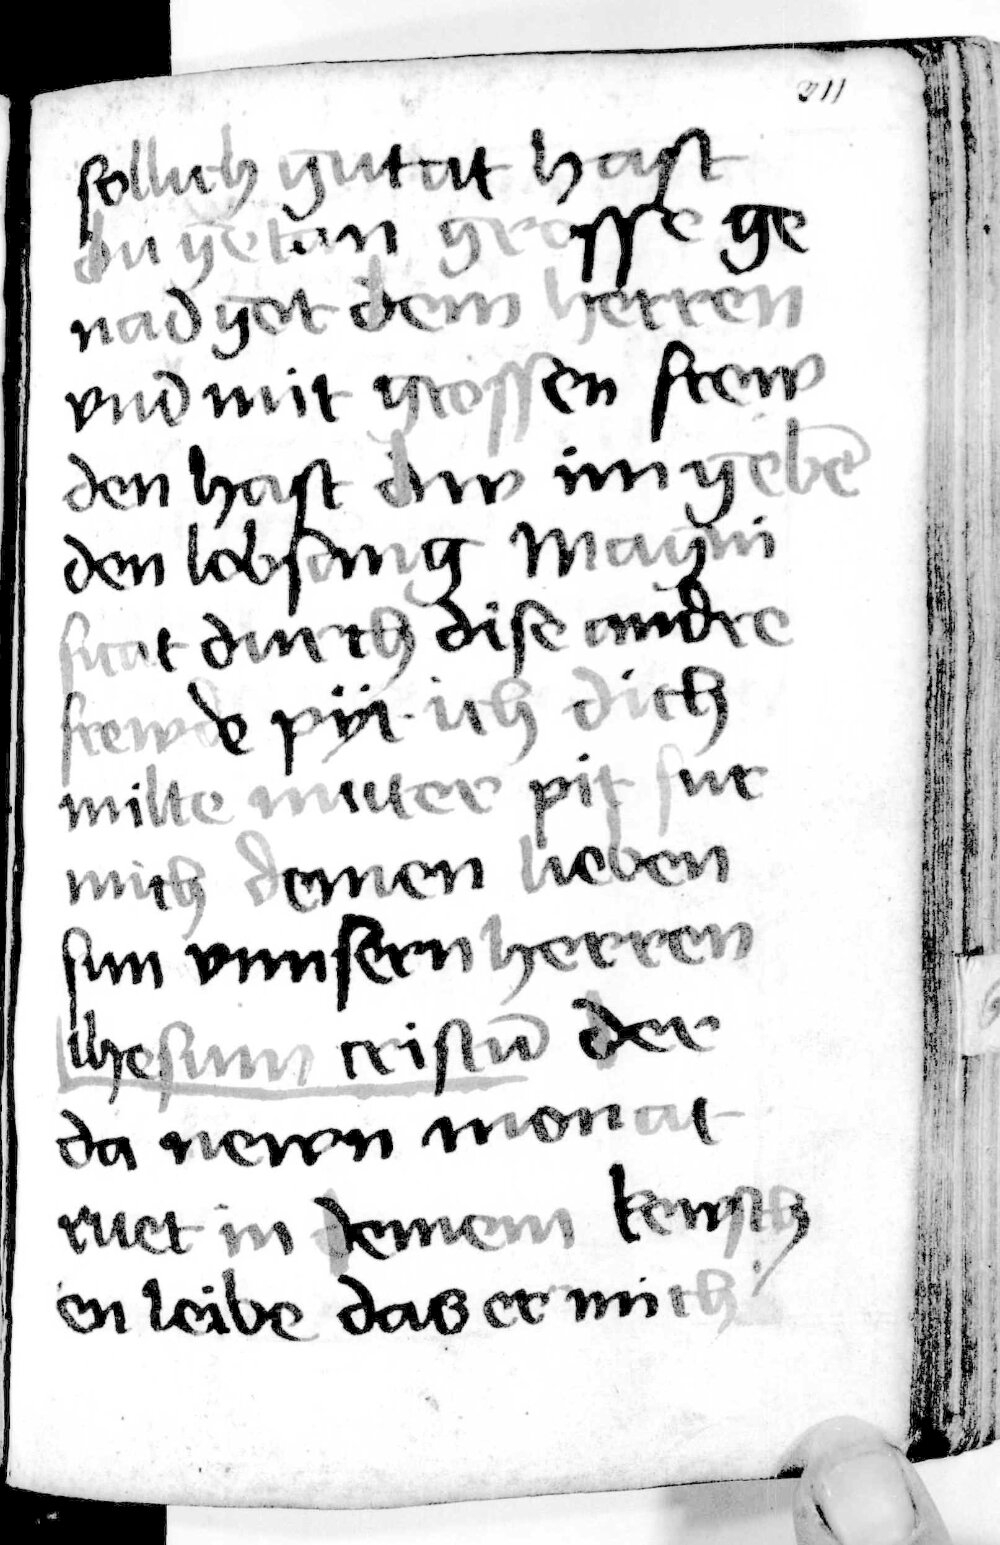 211
sollich gutat hast
du getan grosse ge
nad got dem herren
vnd mit grossen frew
den hast dw im gebē
den lobsang Magni
ficat durch dise andre
frewde pit ich dich
milte muter pit fur
mich deinen lieben
sun vnnsern herren
Ihesum cristū der
da newn monat
ruet in deinem kewsch
en leibe das er mich